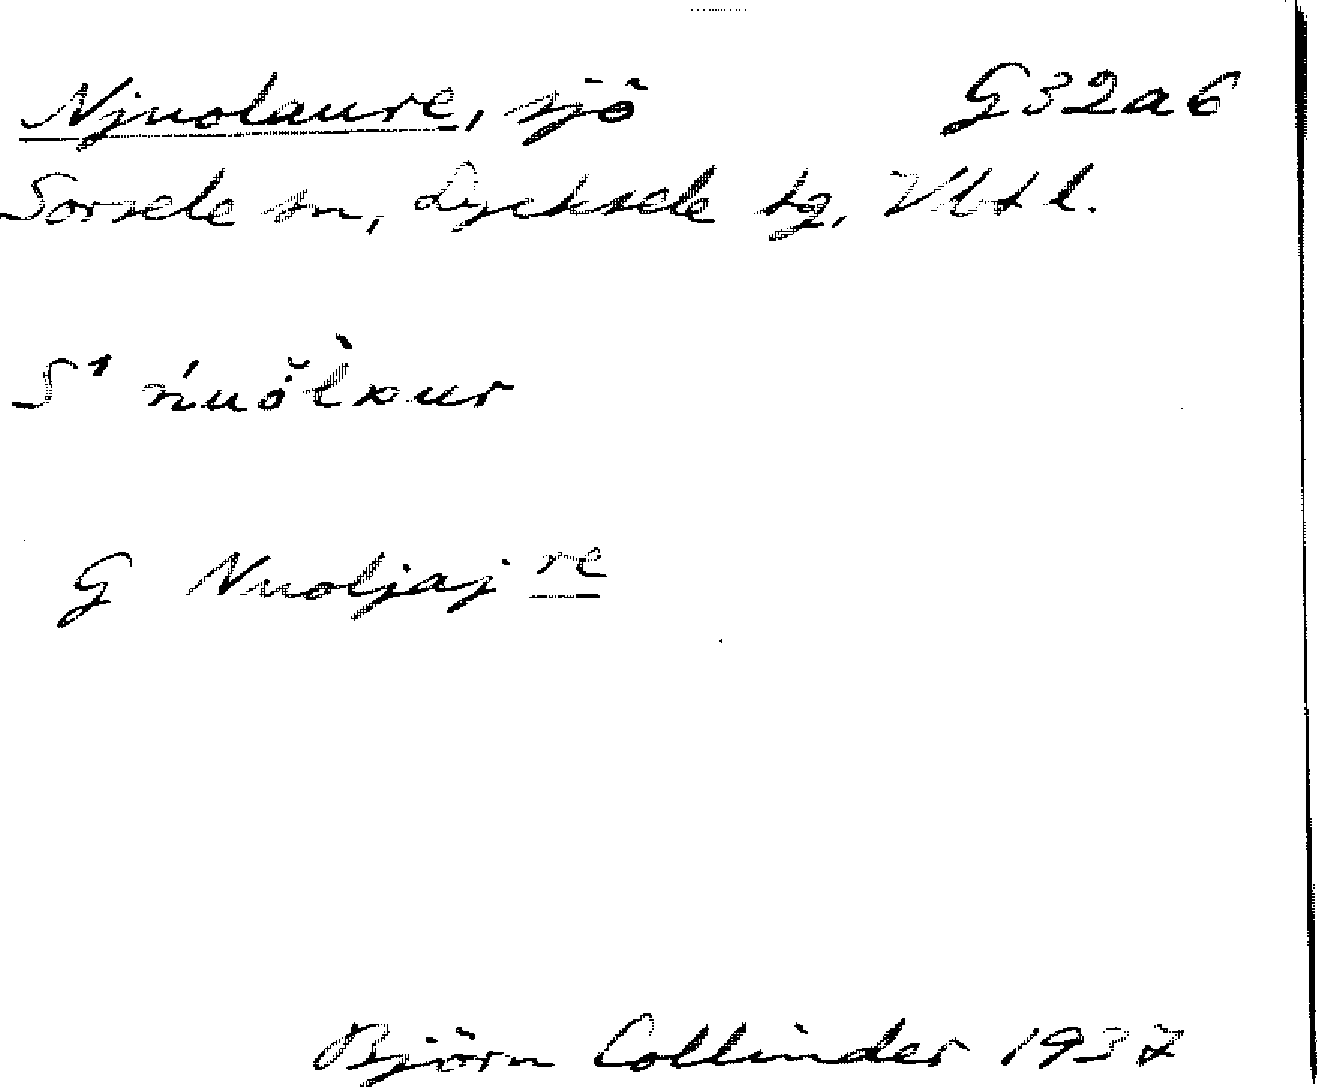 Njuolaure, sjö G32a6
Sorsele sn, Lycksele tg, Vbtl.
S¹
G Nuoljaj re
Björn Collinder 1937